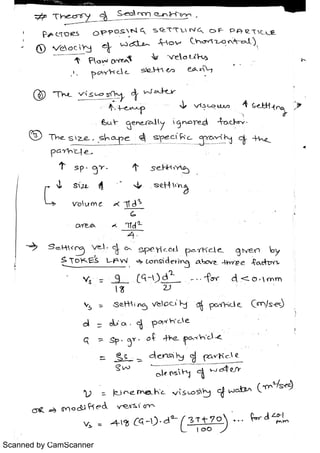 * Theory of Sedimentation.
FACTORS OPPOSING SETTLING OF PARTICLE
① Velocity of water flow (horizontal)
↑ Flow area ↓ velocity
∴ particle settles easily
② The viscosity of water
↑ temp ↓ viscous ↑ settling
but generally ignored factor.
③ The size, shape & specific gravity of the
particle.
↑ sp. gr. ↑ settling
↓ size ↓ settling
volume ∝ πd³/6
area ∝ πd²/4
→ Settling vel. of a spherical particle given by
STOKE'S LAW → considering above three factors
Vs = g/18 (G-1)d²/ν ... for d < 0.1mm
Vs = settling velocity of particle (m/sec)
d = dia. of particle
G = sp. gr. of the particle
= ρs/ρw = density of particle / density of water
ν = kinematic viscosity of water (m²/sec)
OR → modified version
Vs = 418 (G-1).d² (3T+70/100) ... for d<0.1 mm
Scanned by CamScanner